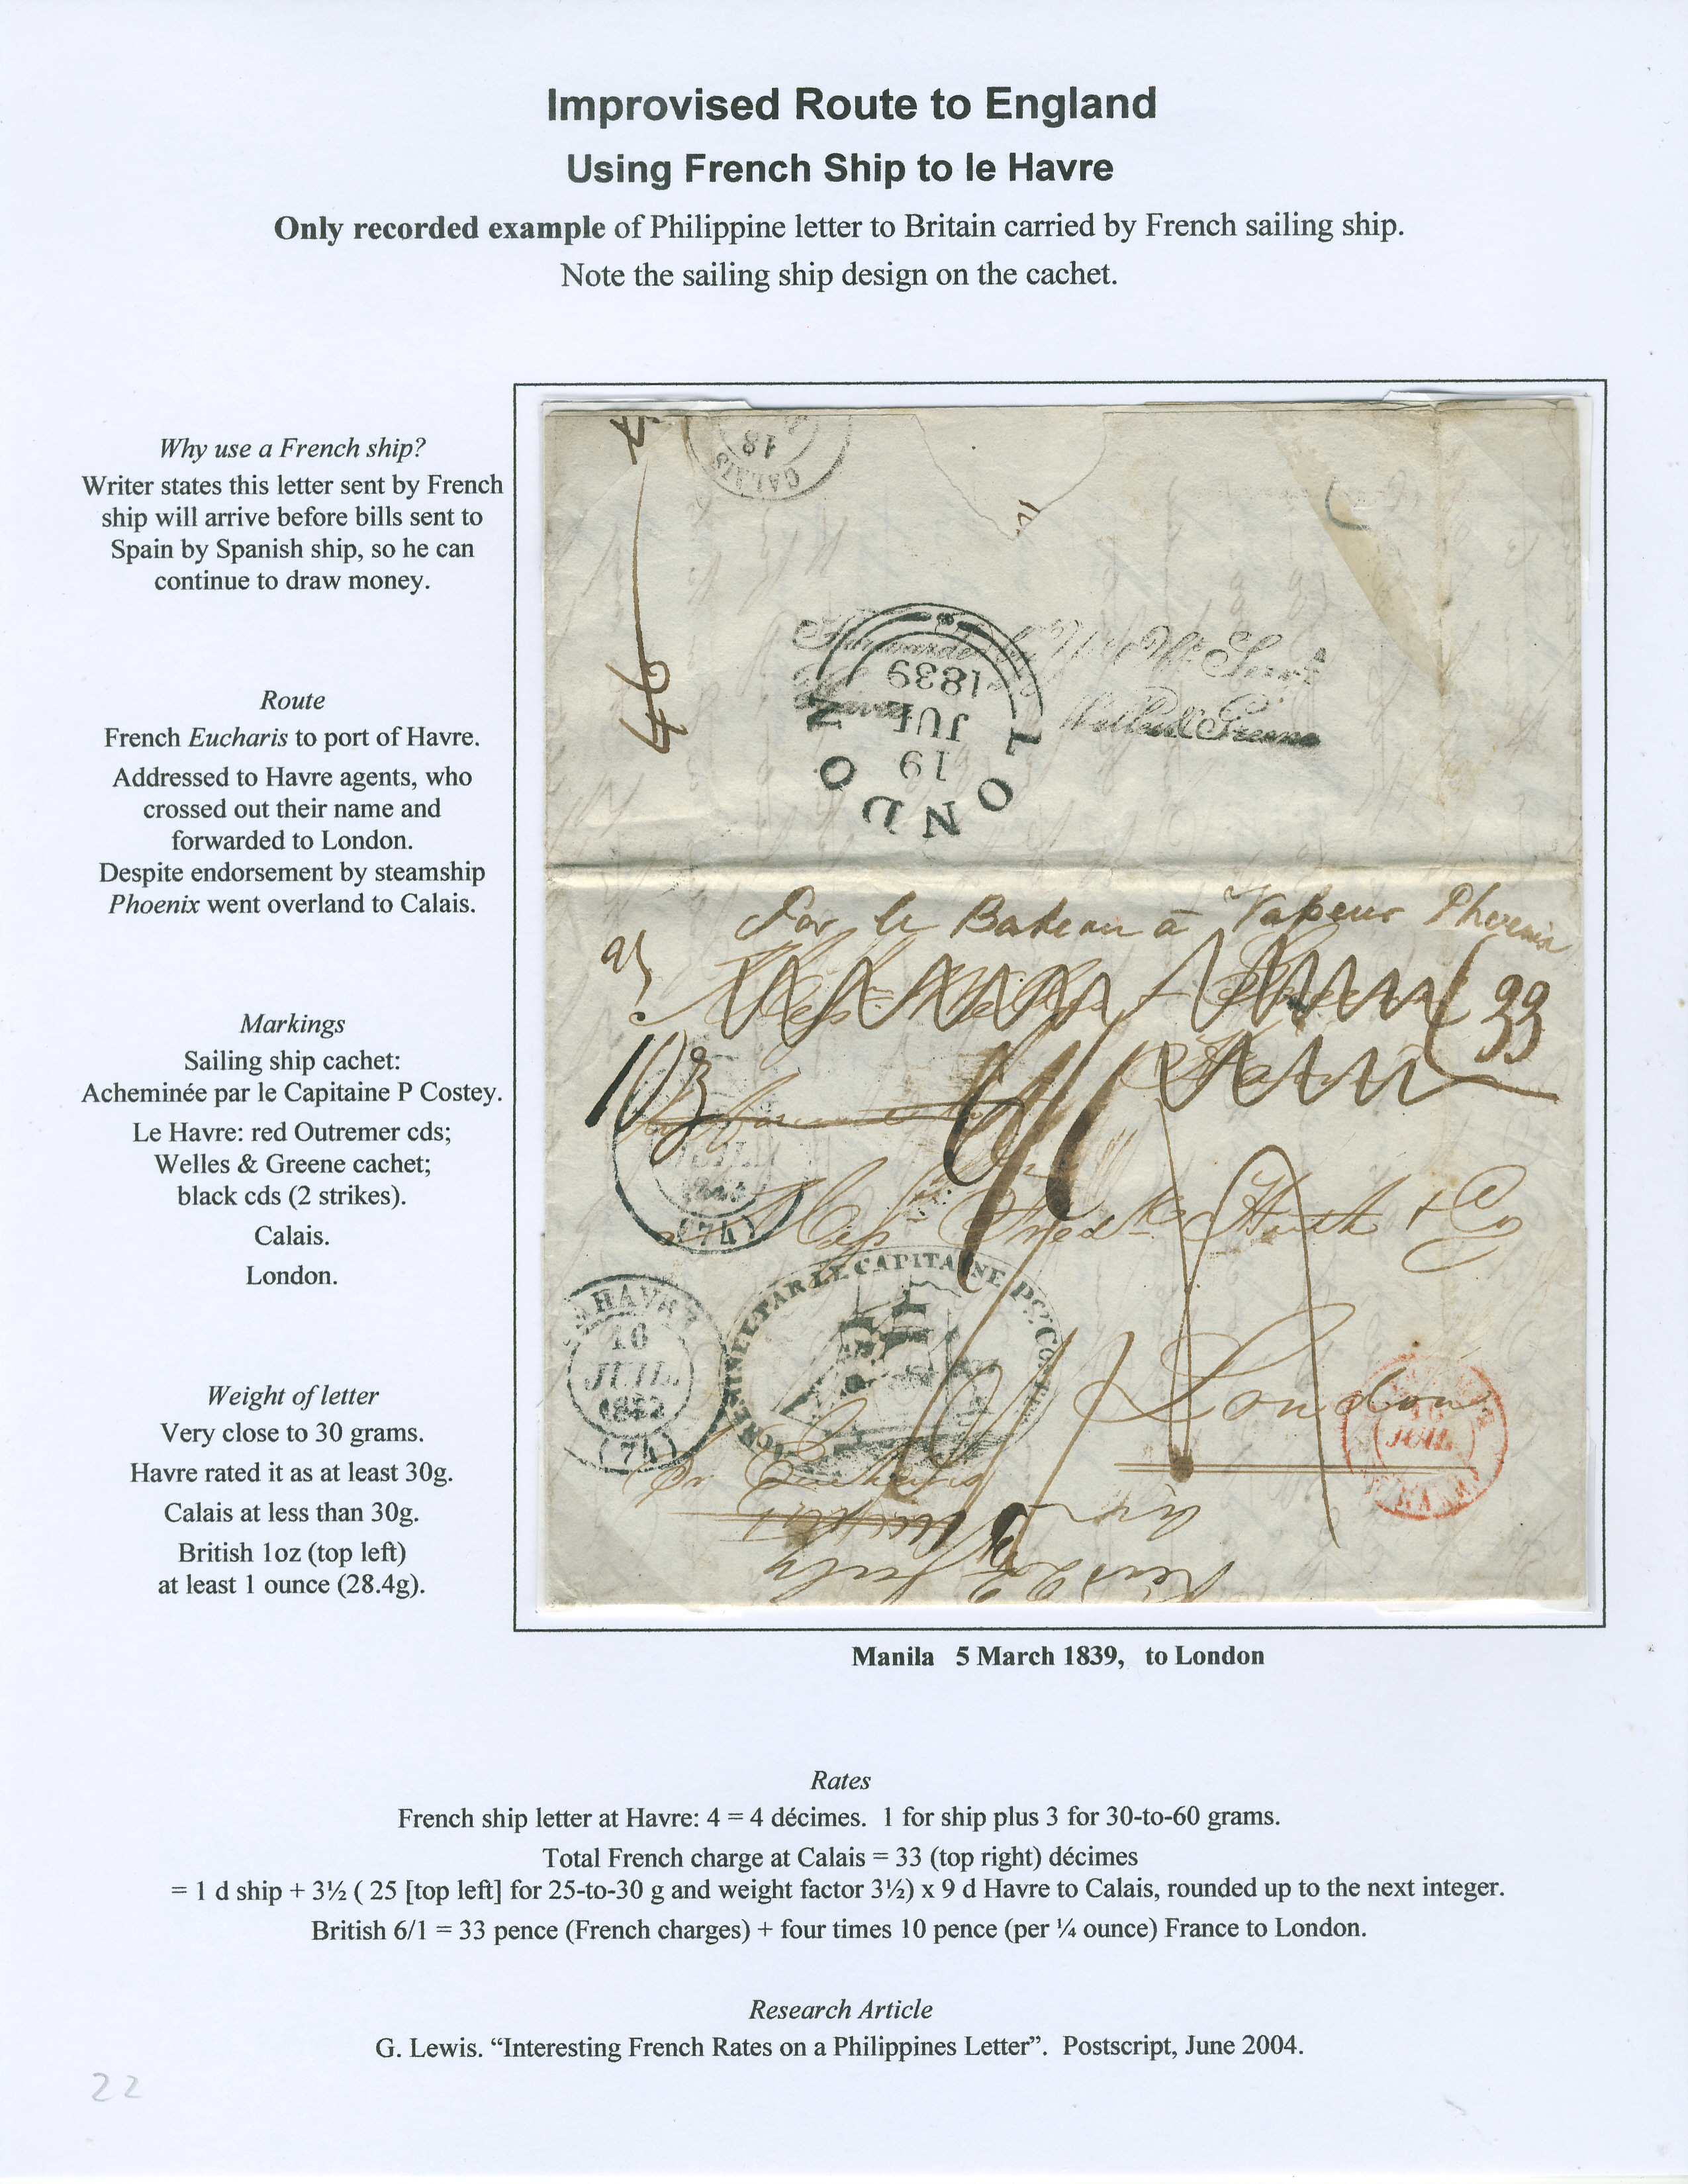 Improvised Route to England
Using French Ship to le Havre
Only recorded example of Philippine letter to Britain carried by French sailing ship.
Note the sailing ship design on the cachet.
Why use a French ship?
Writer states this letter sent by French
ship will arrive before bills sent to
Spain by Spanish ship, so he can
continue to draw money.
Route
French Eucharis to port of Havre.
Addressed to Havre agents, who
crossed out their name and
forwarded to London.
Despite endorsement by steamship
Phoenix went overland to Calais.
Markings
Sailing ship cachet:
Acheminée par le Capitaine P Costey.
Le Havre: red Outremer cds;
Welles & Greene cachet;
black cds (2 strikes).
Calais.
London.
Weight of letter
Very close to 30 grams.
Havre rated it as at least 30g.
Calais at less than 30g.
British 1oz (top left)
at least 1 ounce (28.4g).
CALAIS
18
46
LONDON
19
JUL
1839
Par le Bateau à Vapeur Phoenix
33
Messrs Fredk Huth & Co
London
(74)
HAVRE
16
JUIL.
(74)
PAR LE CAPITAINE
JUIL
Manila 5 March 1839, to London
Rates
French ship letter at Havre: 4 = 4 décimes. 1 for ship plus 3 for 30-to-60 grams.
Total French charge at Calais = 33 (top right) décimes
= 1 d ship + 3½ ( 25 [top left] for 25-to-30 g and weight factor 3½) x 9 d Havre to Calais, rounded up to the next integer.
British 6/1 = 33 pence (French charges) + four times 10 pence (per ¼ ounce) France to London.
Research Article
G. Lewis. “Interesting French Rates on a Philippines Letter”. Postscript, June 2004.
22